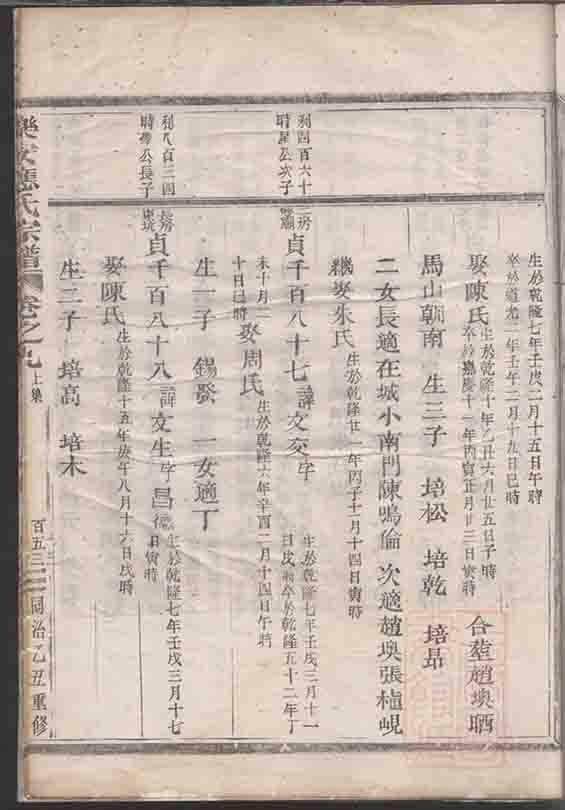 生於乾隆七年壬戌二月十五日午時
卒於道光二年壬午二月十九日巳時
娶陳氏 生於乾隆十年乙丑六月廿五日子時
卒於嘉慶十一年丙寅正月廿三日寅時
合塟趙墺晒
馬山朝南 生三子 培松 培乾 培昻
二女長適在城小南門陳鳴倫 次適趙墺張植峴
繼娶朱氏 生於乾隆廿一年丙子十二月十四日寅時
列四百六十
晴星公次子
貞千百八十七 諱文交字
生於乾隆七年壬戌三月十一
日戌時卒於乾隆五十二年丁
未十月二
十日巳時 娶周氏 生於乾隆六年辛酉二月十四日午時
生一子 錫發 一女適丁
列八百三四
公長子
貞千百八十八 諱文生字昌德
生於乾隆七年壬戌三月十七
日寅時
娶陳氏 生於乾隆十五年庚午八月十六日戌時
生二子 培高 培木
樂安應氏宗譜 卷之九 上集 百五三 同治乙丑重修